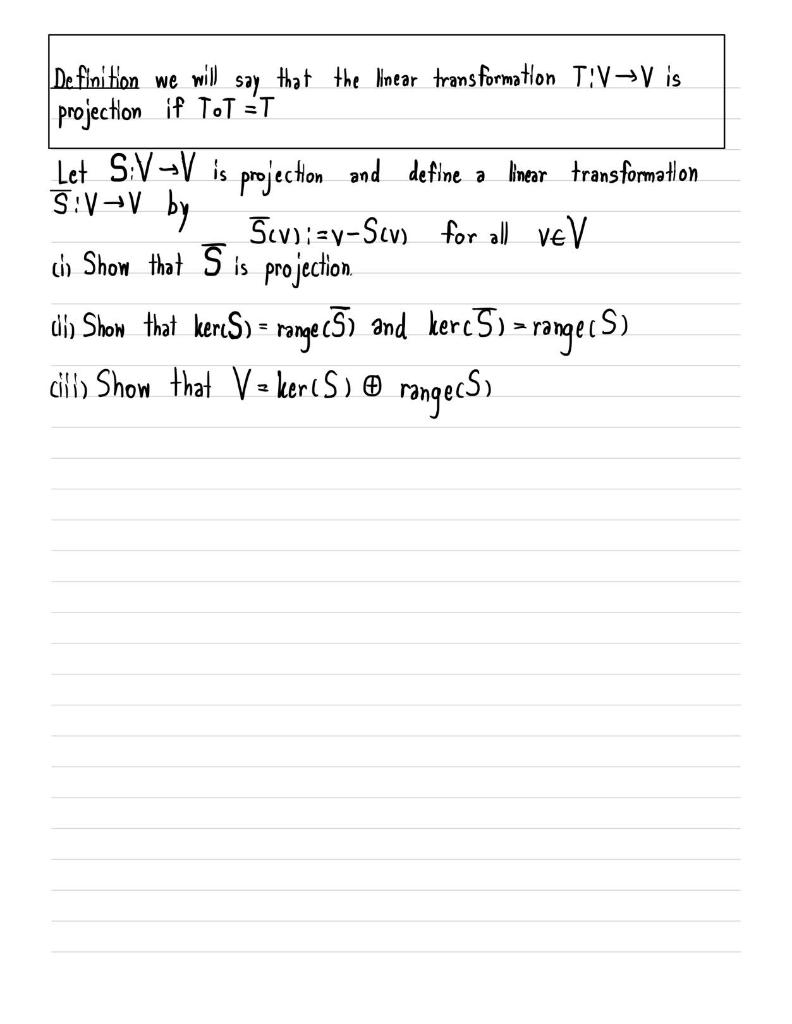 Definition we will say that the linear transformation T:V→V is
projection if T∘T=T
Let S:V→V is projection and define a linear transformation
S̅:V→V by
S̅(v):=v-S(v) for all v∈V
(i) Show that S̅ is projection.
(ii) Show that ker(S) = range(S̅) and ker(S̅) = range(S)
(iii) Show that V = ker(S) ⊕ range(S)